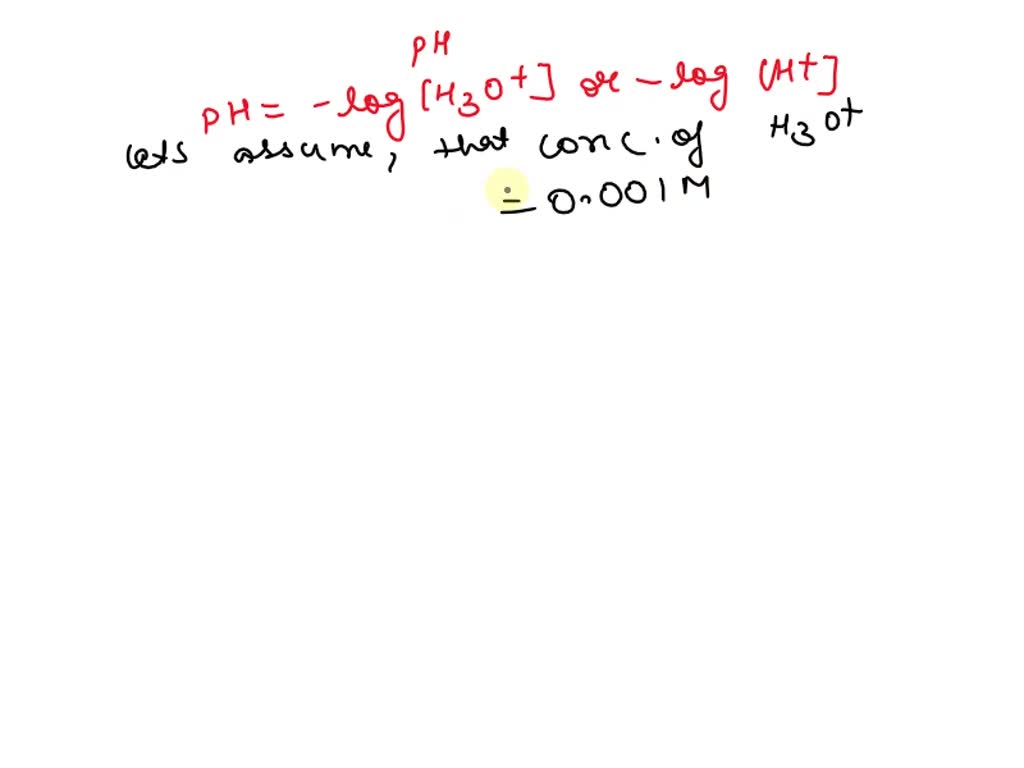 pH
pH = -log [H3O+] or -log [H+]
lets assume, that conc. of H3O+
= 0.001 M